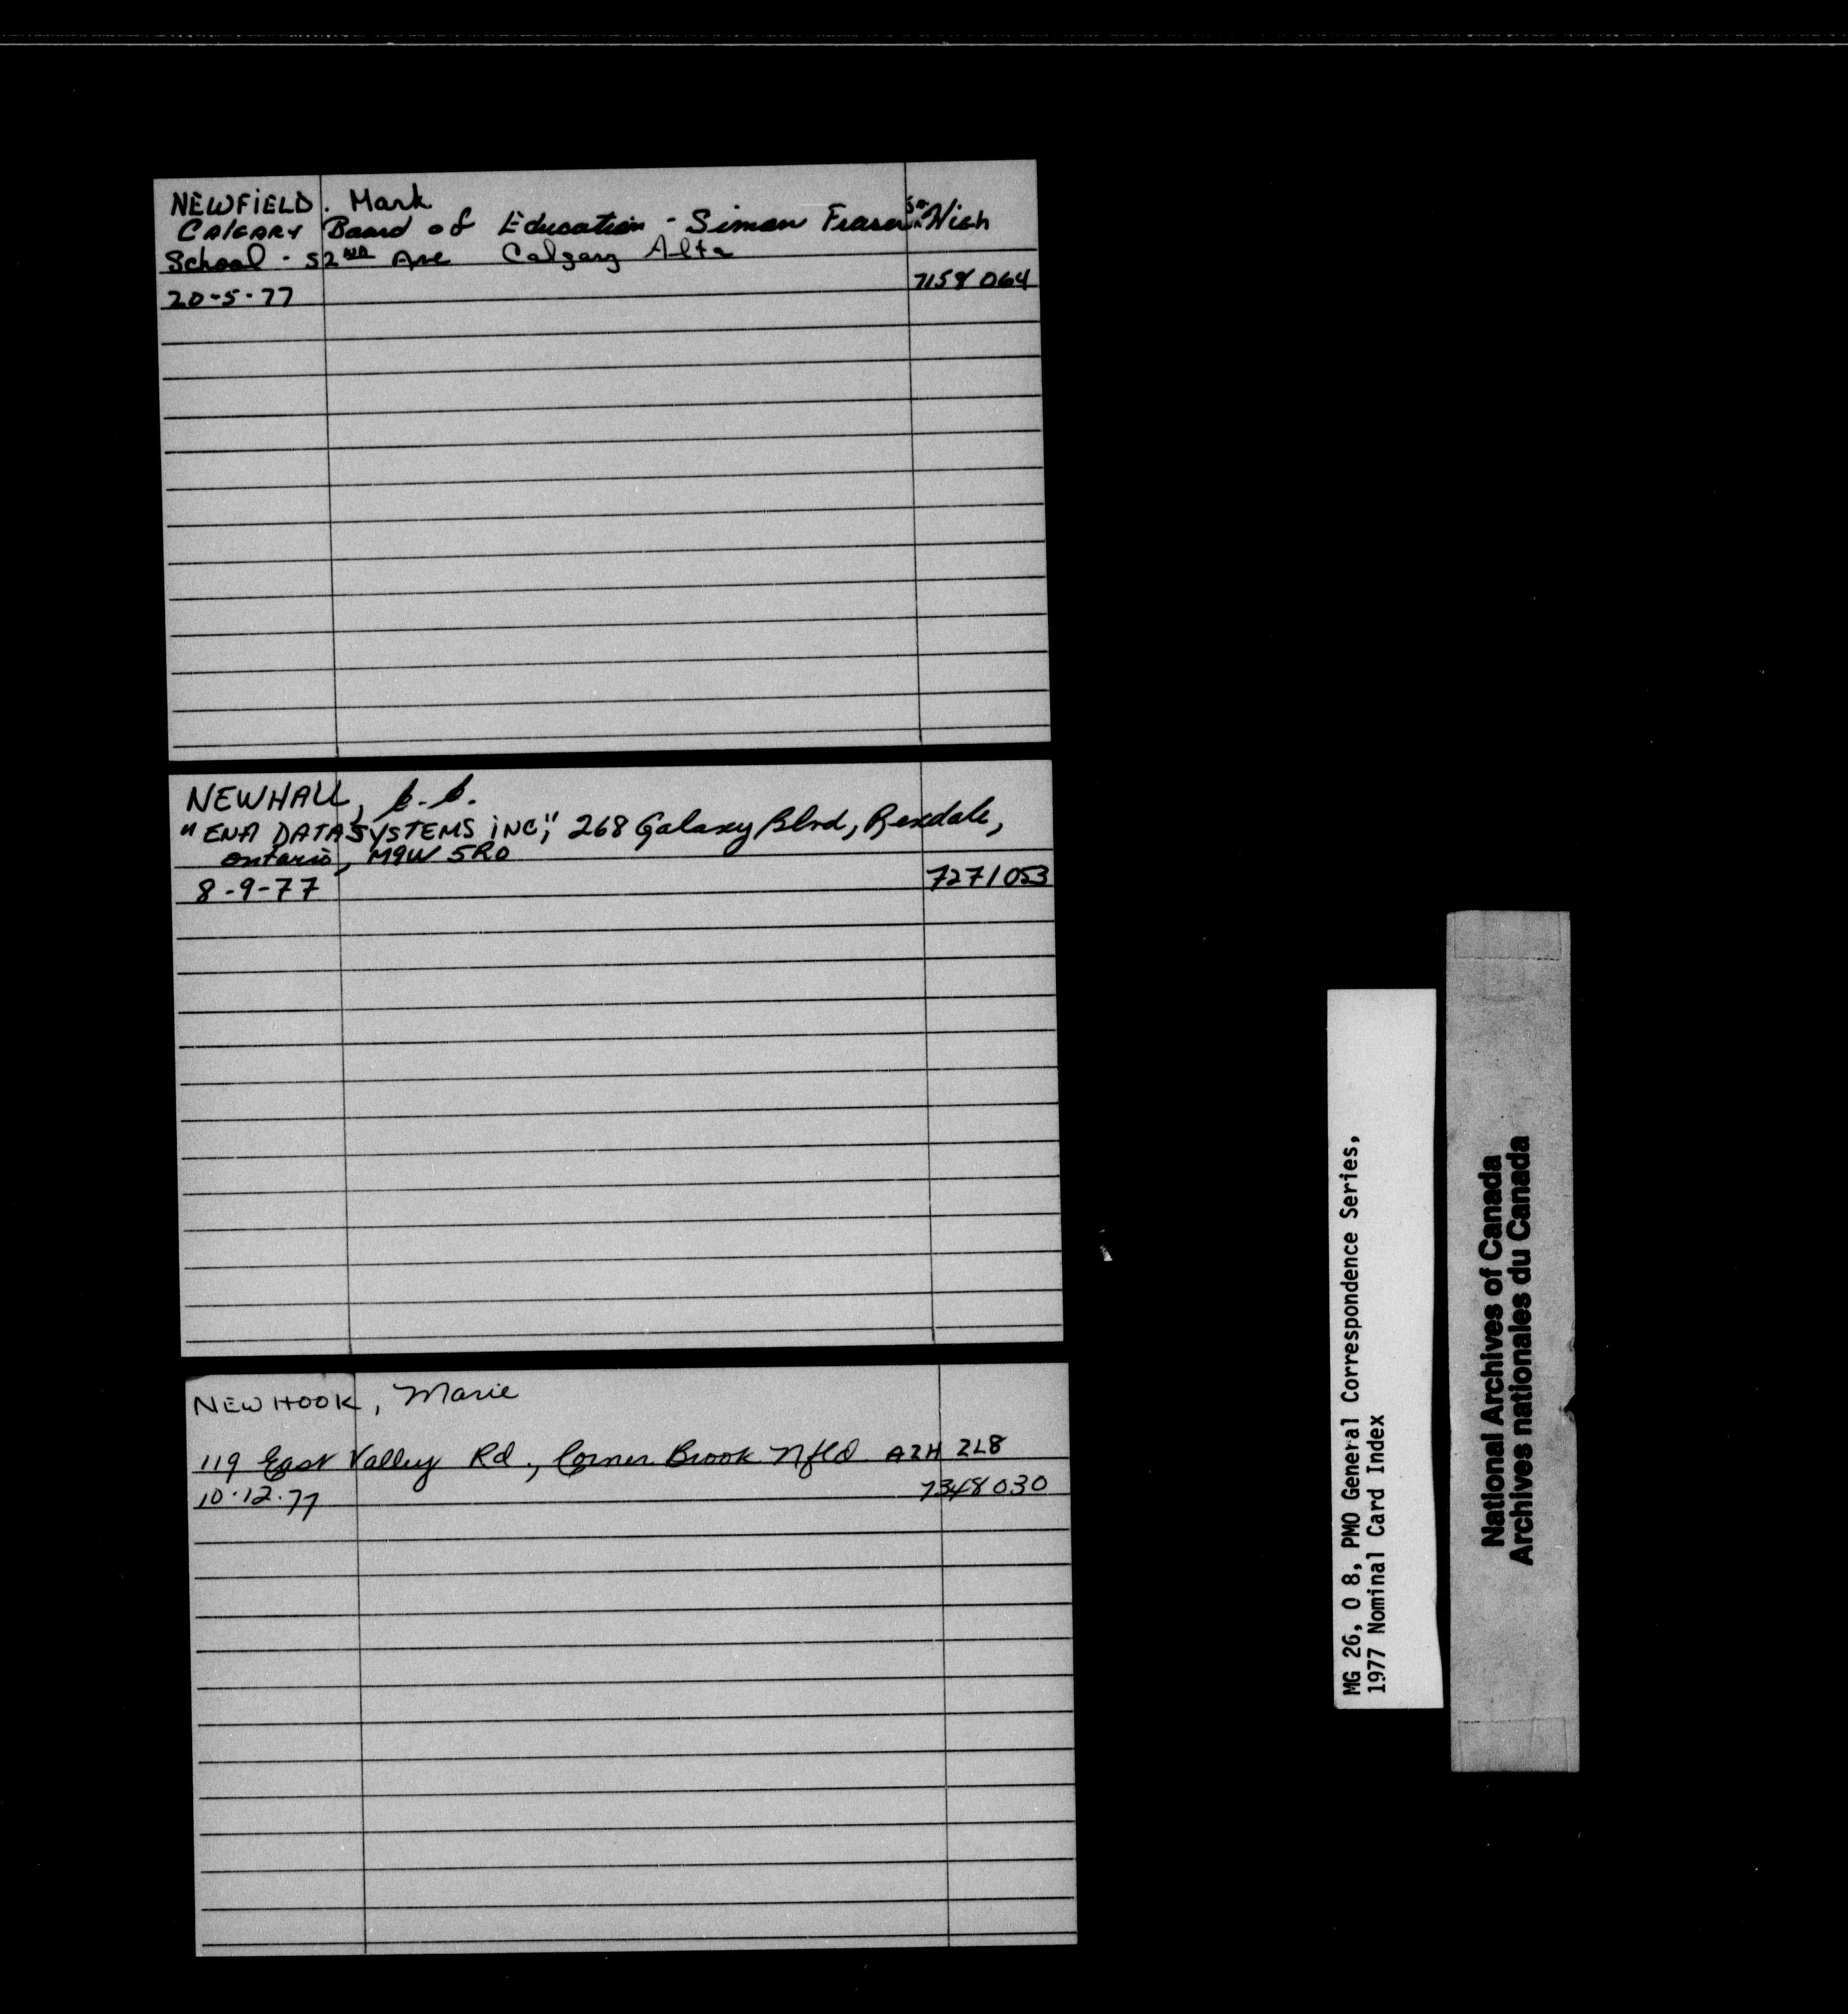 NEWFIELD. Mark
CAlGARY Board of Education - Simon Fraser Jr. High
School - 52ND Ave Calgary Alta
20-5-77 7158 064
NEWHALL,
"ENA DATASYSTEMS iNC," 268 Galaxy Blvd, Rexdale,
Ontario, M9W 5R0
8-9-77 7271053
NEWHOOK, Marie
119 East Valley Rd., Corner Brook Nfld. A2H 2L8
10.12.77 7348 030
MG 26, O 8, PMO General Correspondence Series,
1977 Nominal Card Index
National Archives of Canada
Archives nationales du Canada